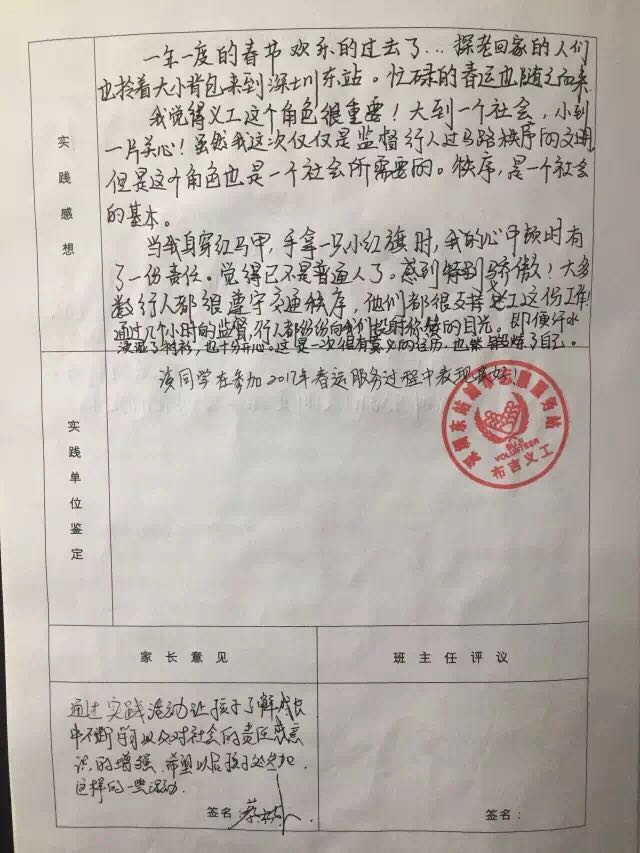 实践感想
一年一度的春节欢乐的过去了…探老回家的人们
也拎着大小背包来到深圳东站。忙碌的春运也随之而来
我觉得义工这个角色很重要！大到一个社会，小到
一片关心！虽然我这次仅仅是监督行人过马路秩序的文明
但是这个角色也是一个社会所需要的。秩序，是一个社会
的基本。
当我身穿红马甲，手拿一只小红旗时，我的心中顿时有
了一份责任。觉得已不是普通人了。感到特别骄傲！大多
数行人都很遵守交通秩序，他们都很支持义工这份工作！
通过几个小时的监督，行人都纷纷向我们投射称赞的目光。即便汗水
湿了衬衫，也十分开心。这是一次很有意义的经历，也能锻炼了自己。
实践单位鉴定
该同学在参加2017年春运服务过程中表现良好！
VOLUNTEER
布吉义工
家长意见
通过实践活动让孩子了解成长
中不断学习以及对社会的责任感意
识的增强，希望以后孩子处参加
这样的一些活动.
签名：
班主任评议
签名：